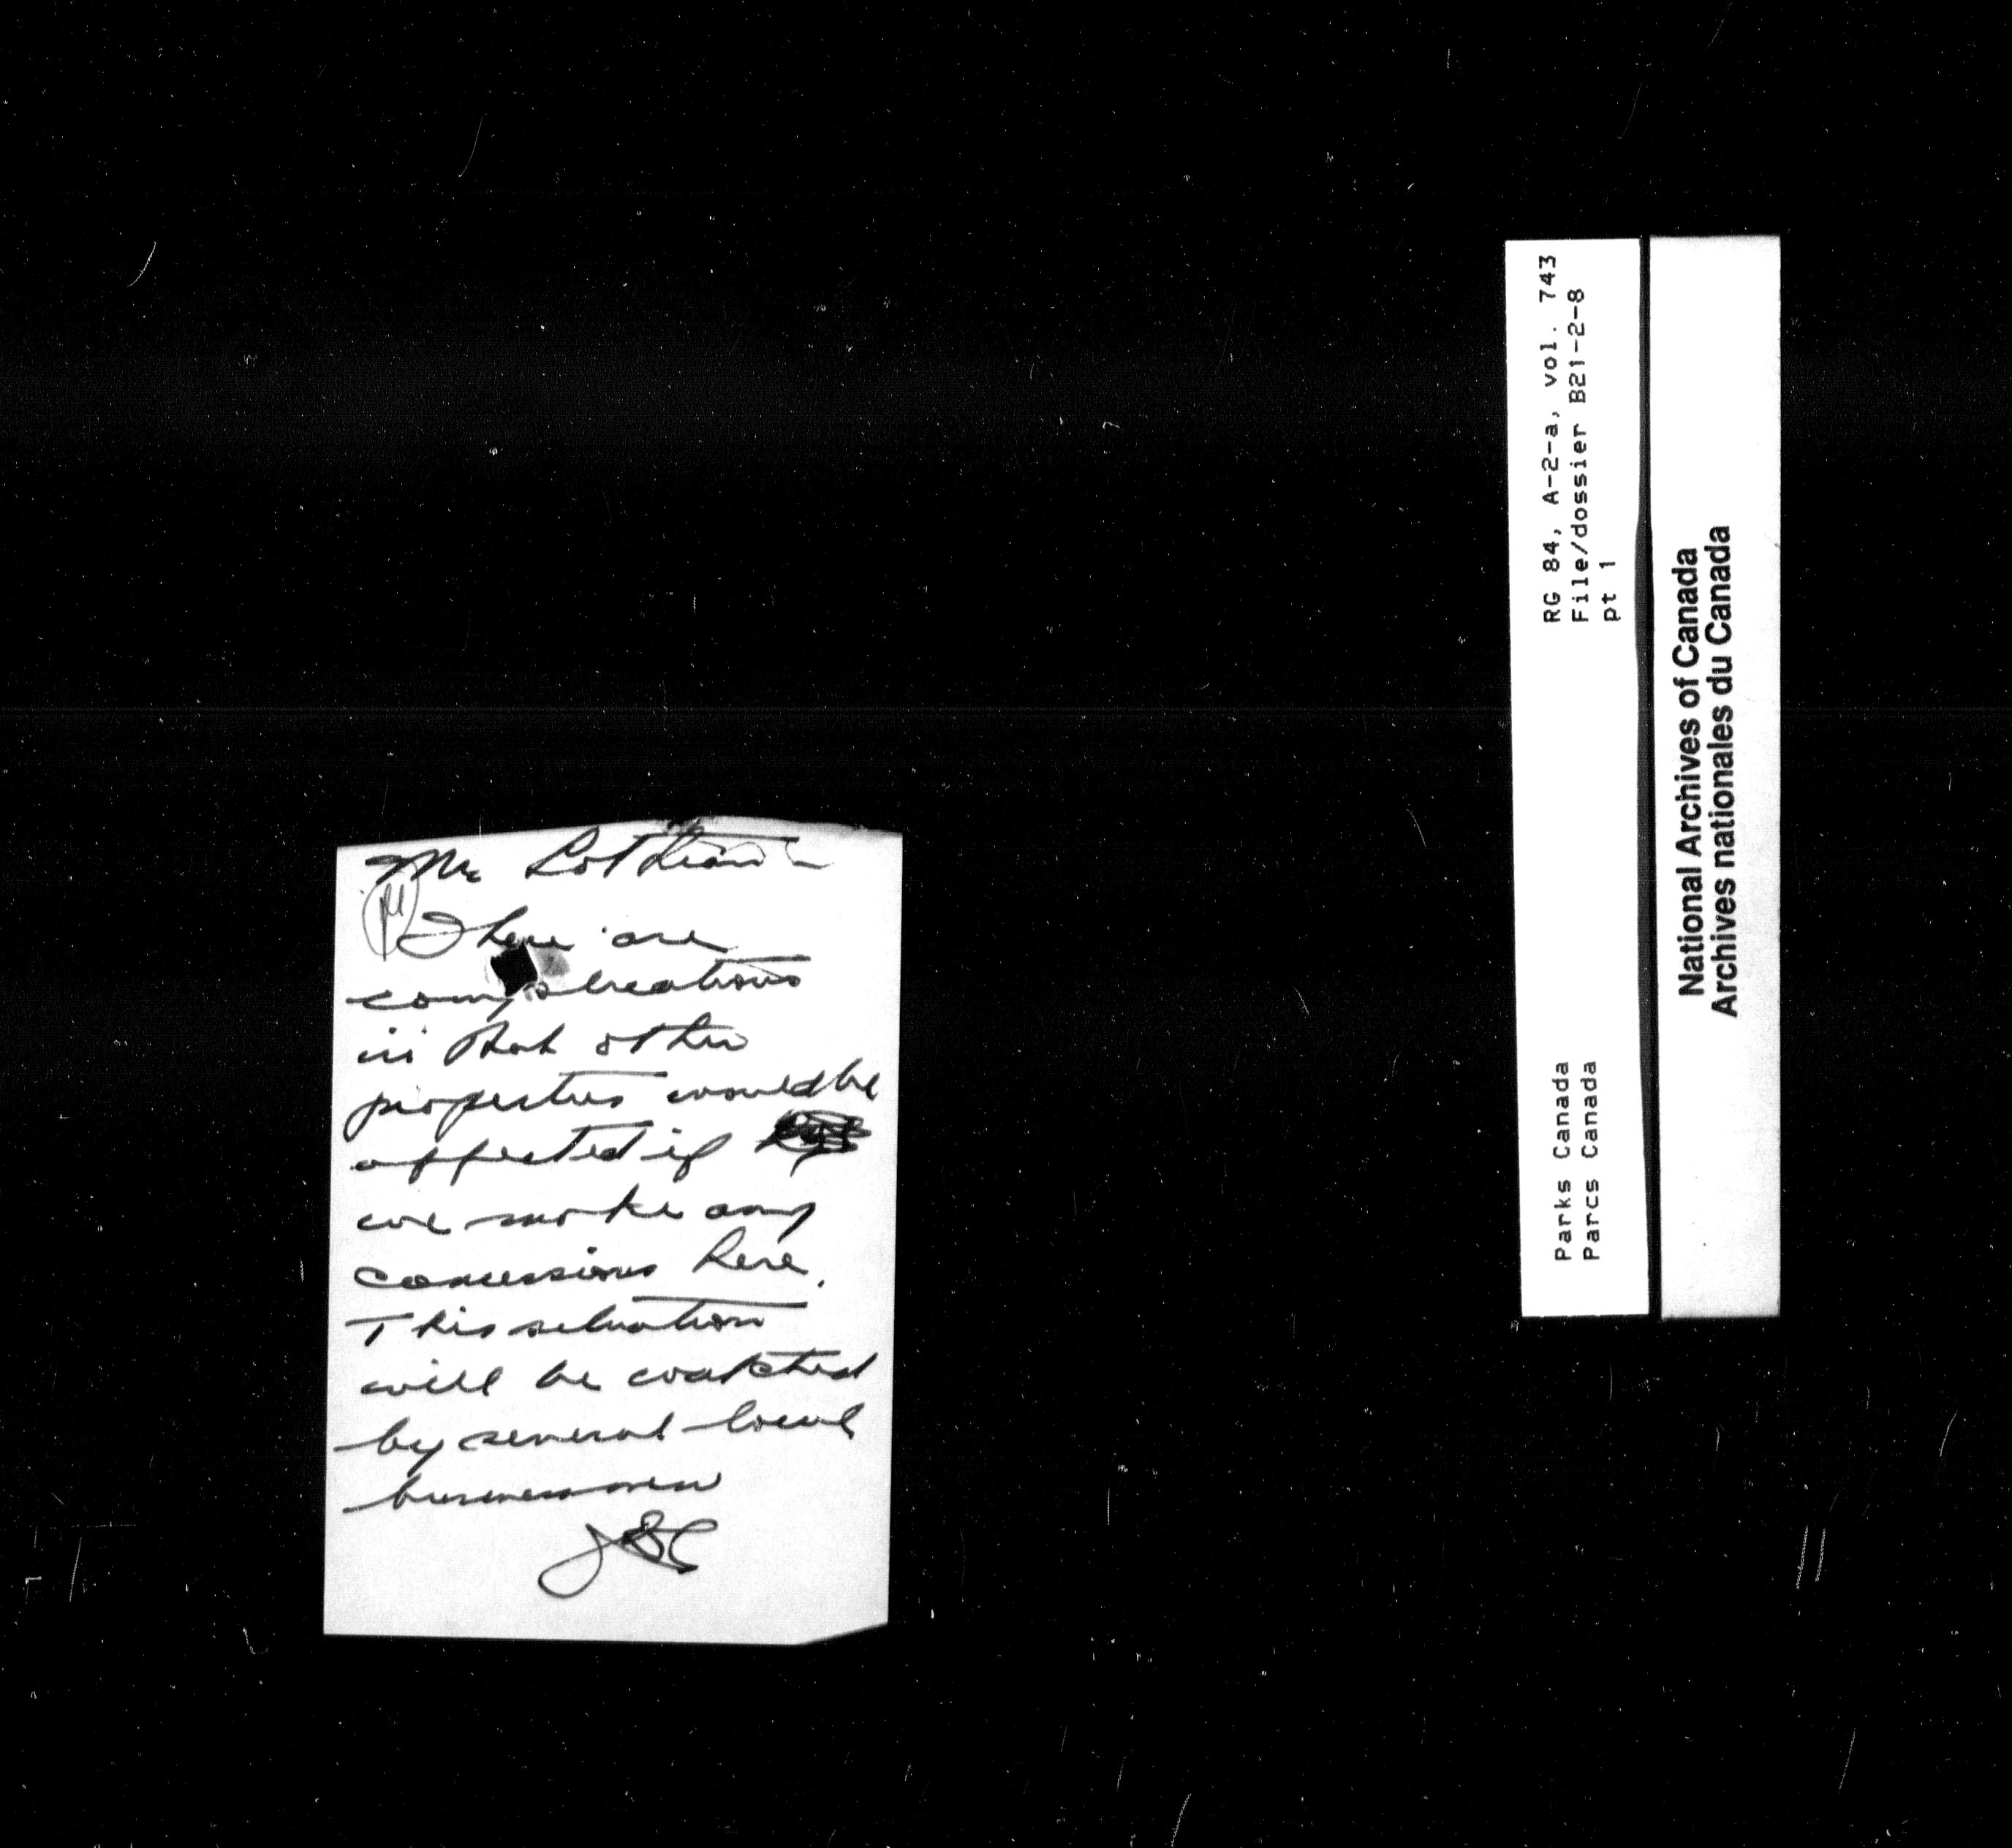 Mr Lothian
There are
complications
in that other
properties would be
affected if
we make any
concessions here.
This situation
will be watched
by several local
businessmen
RG 84, A-2-a, vol. 743
File/dossier B21-2-8
pt 1
Parks Canada
Parcs Canada
National Archives of Canada
Archives nationales du Canada